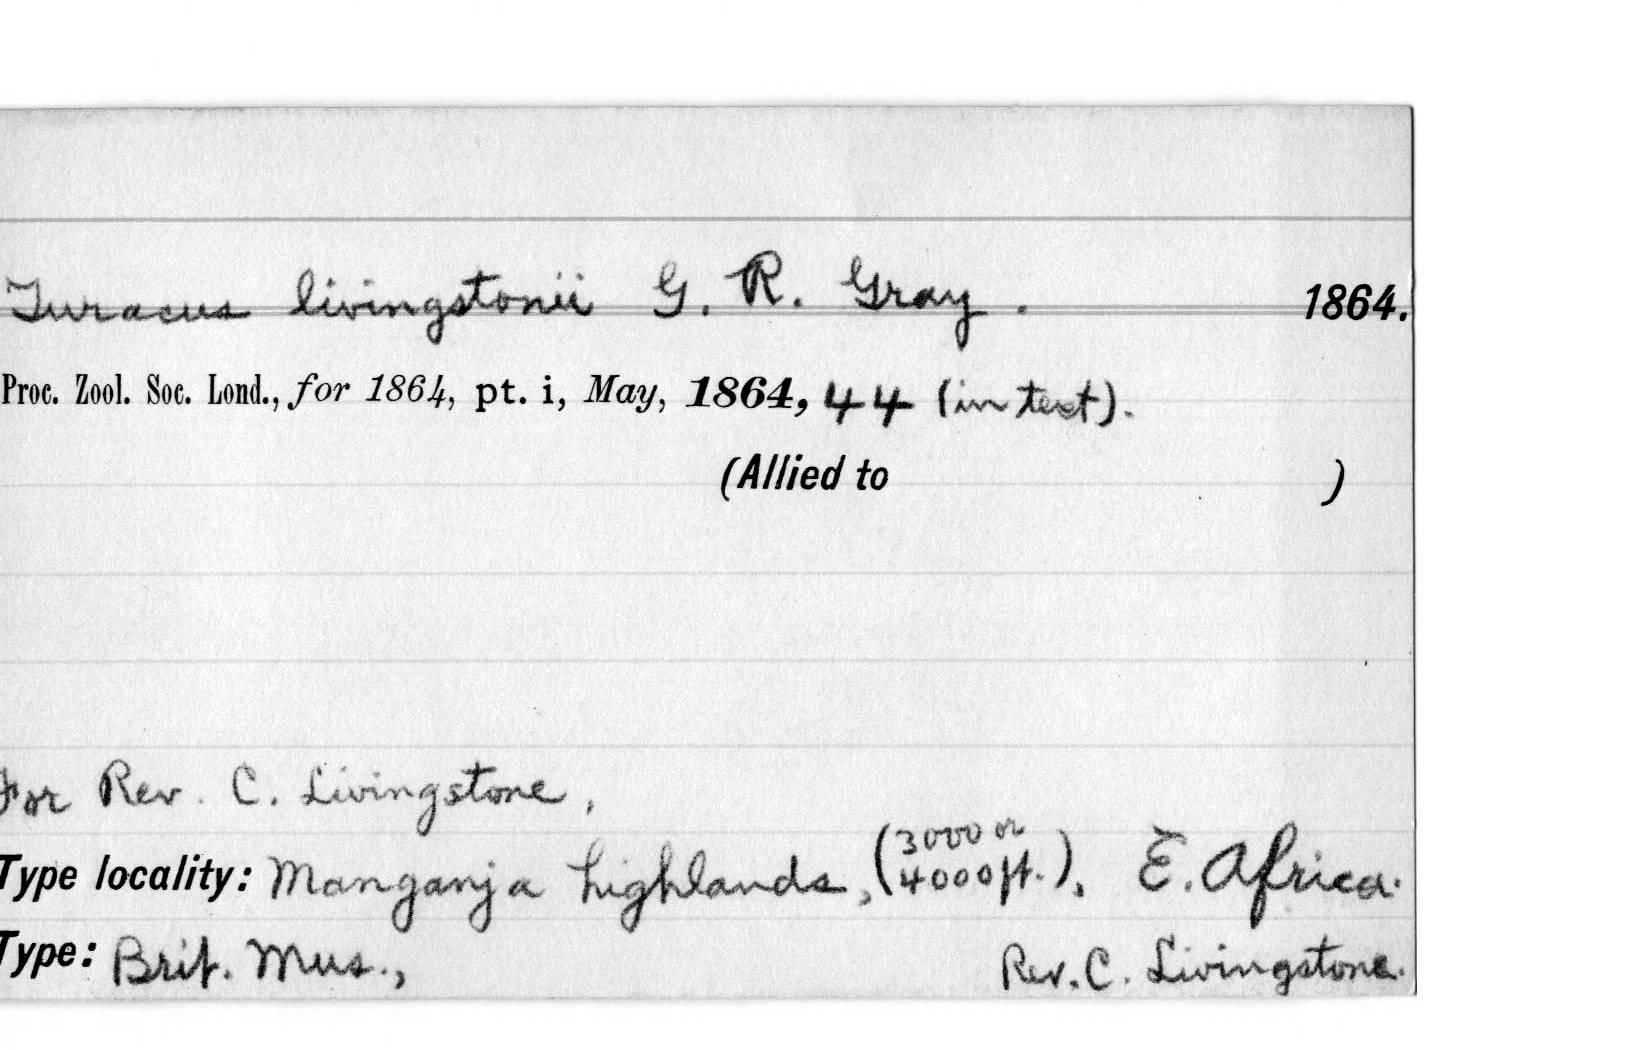 Turacus livingstonii G. R. Gray. 1864.
Proc. Zool. Soc. Lond., for 1864, pt. i, May, 1864, 44 (in text).
(Allied to )
For Rev. C. Livingstone,
Type locality: Manganja highlands, (3000 or 4000 ft.), E. Africa.
Type: Brit. Mus., Rev. C. Livingstone.